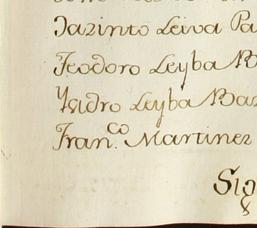 Jazinto Leiva Pa
Teodoro Leyba B
Ysidro Leyba Baz
Fran.co Martinez
Sig